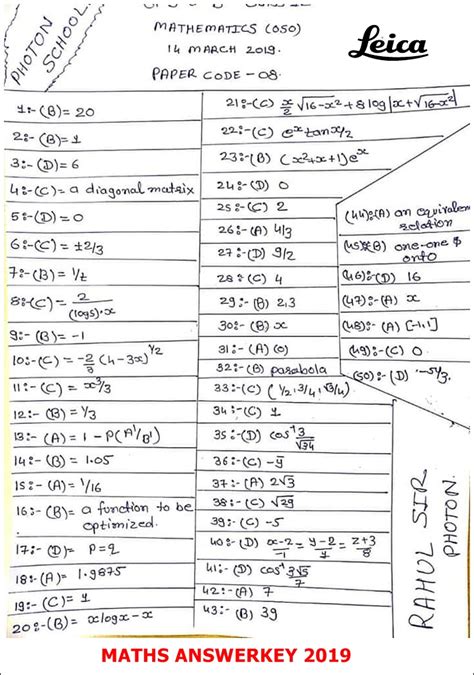 PHOTON
SCHOOL
MATHEMATICS (050)
14 MARCH 2019.
PAPER CODE - 08.
Leica
1:- (B) = 20
2:- (B) = 1
3:- (D) = 6
4:- (C) = a diagonal matrix
5:- (D) = 0
6:- (C) = ±2/3
7:- (B) = 1/2
8:- (C) = 2/(log5)·x
9:- (B) = -1
10:- (C) = -2/3 (4-3x)^1/2
11:- (C) = x^3/3
12:- (B) = 1/3
13:- (A) = 1 - P(A'/B')
14:- (B) = 1.05
15:- (A) = 1/16
16:- (B) = a function to be
optimized.
17:- (D) = P=q
18:- (A) = 1.9875
19:- (C) = 1
20:- (B) = xlogx-x
21:- (C) x/2 √16-x² + 8 log|x+√16-x²|
22:- (C) e^x tan x/2
23:- (B) (x²+x+1)e^x
24:- (D) 0
25:- (C) 2
26:- (A) 4/3
27:- (D) 9/2
28:- (C) 4
29:- (B) 2,3
30:- (B) x
31:- (A) (0)
32:- (B) parabola
33:- (C) (1/2, 3/4, √3/4)
34:- (C) 1
35:- (D) cos⁻¹ 3/√34
36:- (C) -j
37:- (A) 2√3
38:- (C) √29
39:- (C) -5
40:- (D) x-2/-1 = y-2/7 = z+3/8
41:- (D) cos⁻¹ 3√5/7
42:- (A) 7
43:- (B) 39
(44):- (A) an equivalen
relation
(45):- (B) one-one &
onto
(46):- (D) 16
(47):- (A) x
(48):- (A) [-1,1]
(49):- (C) 0
(50):- (D) -5π/3.
RAHUL SIR
PHOTON.
MATHS ANSWERKEY 2019